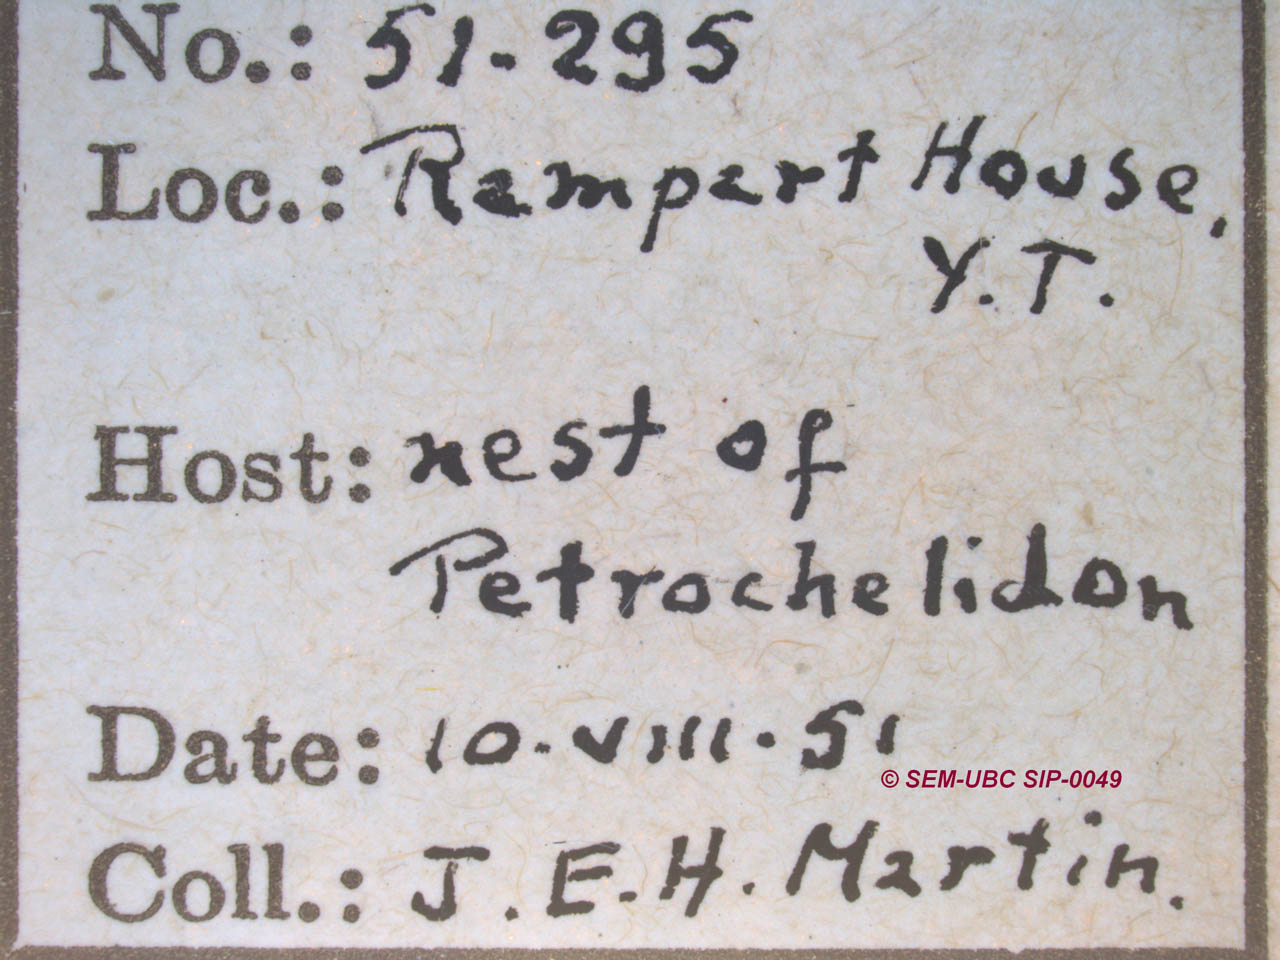 No.: 51-295
Loc.: Rampart House,
Y.T.
Host: nest of
Petrochelidon
Date: 10.VIII.51
© SEM-UBC SIP-0049
Coll.: J.E.H. Martin.